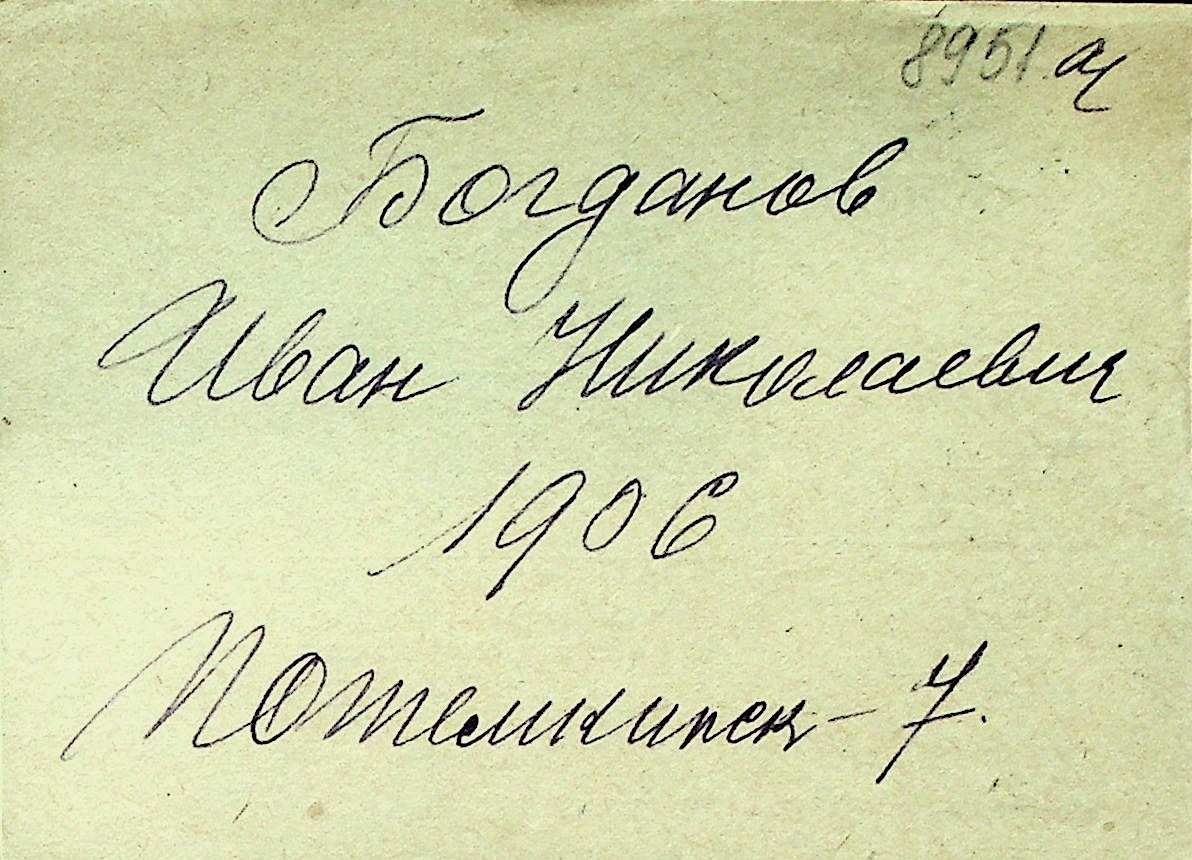 8951 а
Богданов
Иван Николаевич
1906
Потемкинск - 7.